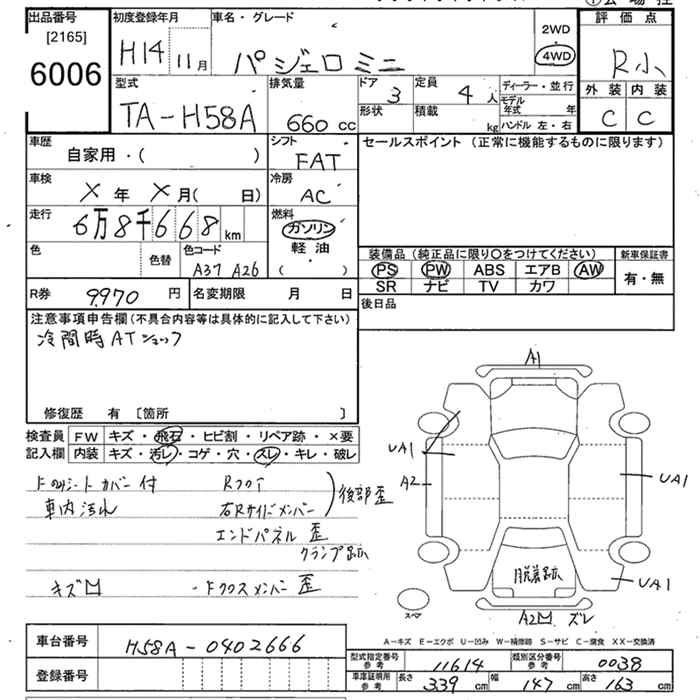 ①会場控
出品番号
[2165]
6006
初度登録年月
H14年11月
車名・グレード
パジェロミニ
2WD
4WD
評価点
R小
外装 内装
C C
型式
TA-H58A
排気量
660 cc
ドア 3
形状
定員 4 人
積載 kg
ディーラー・並行
モデル年式 年
ハンドル 左・右
車歴
自家用・( )
シフト
FAT
セールスポイント (正常に機能するものに限ります)
車検
X年 X月( 日)
冷房
AC
走行
6万8千668 km
燃料
ガソリン
軽油
( ・ )
色
色替
色コード
A37 A26
装備品(純正品に限り○をつけてください)
PS PW ABS エアB AW
SR ナビ TV カワ
新車保証書
有・無
R券 9970 円
名変期限 月 日
後日品
注意事項申告欄(不具合内容等は具体的に記入して下さい)
冷間時ATショック
修復歴 有 〔箇所 〕
検査員記入欄
FW キズ・飛石・ヒビ割・リペア跡・×要
内装 キズ・汚レ・コゲ・穴・スレ・キレ・破レ
シートカバー付
車内汚れ
Rフロア
右Rサイドメンバー
後部歪
エンドパネル歪
クランプ跡
キズ凹
クロスメンバー歪
A1
UA1
A2
UA1
脱着跡
UA1
スペア
A2凹 ズレ
車台番号
H58A-0402666
登録番号
A-キズ E-エクボ U-凹み W-補修跡 S-サビ C-腐食 XX-交換済
型式指定番号 参考 11614
類別区分番号 参考 0038
車庫証明用 参考 長さ 339 cm 幅 147 cm 高さ 163 cm